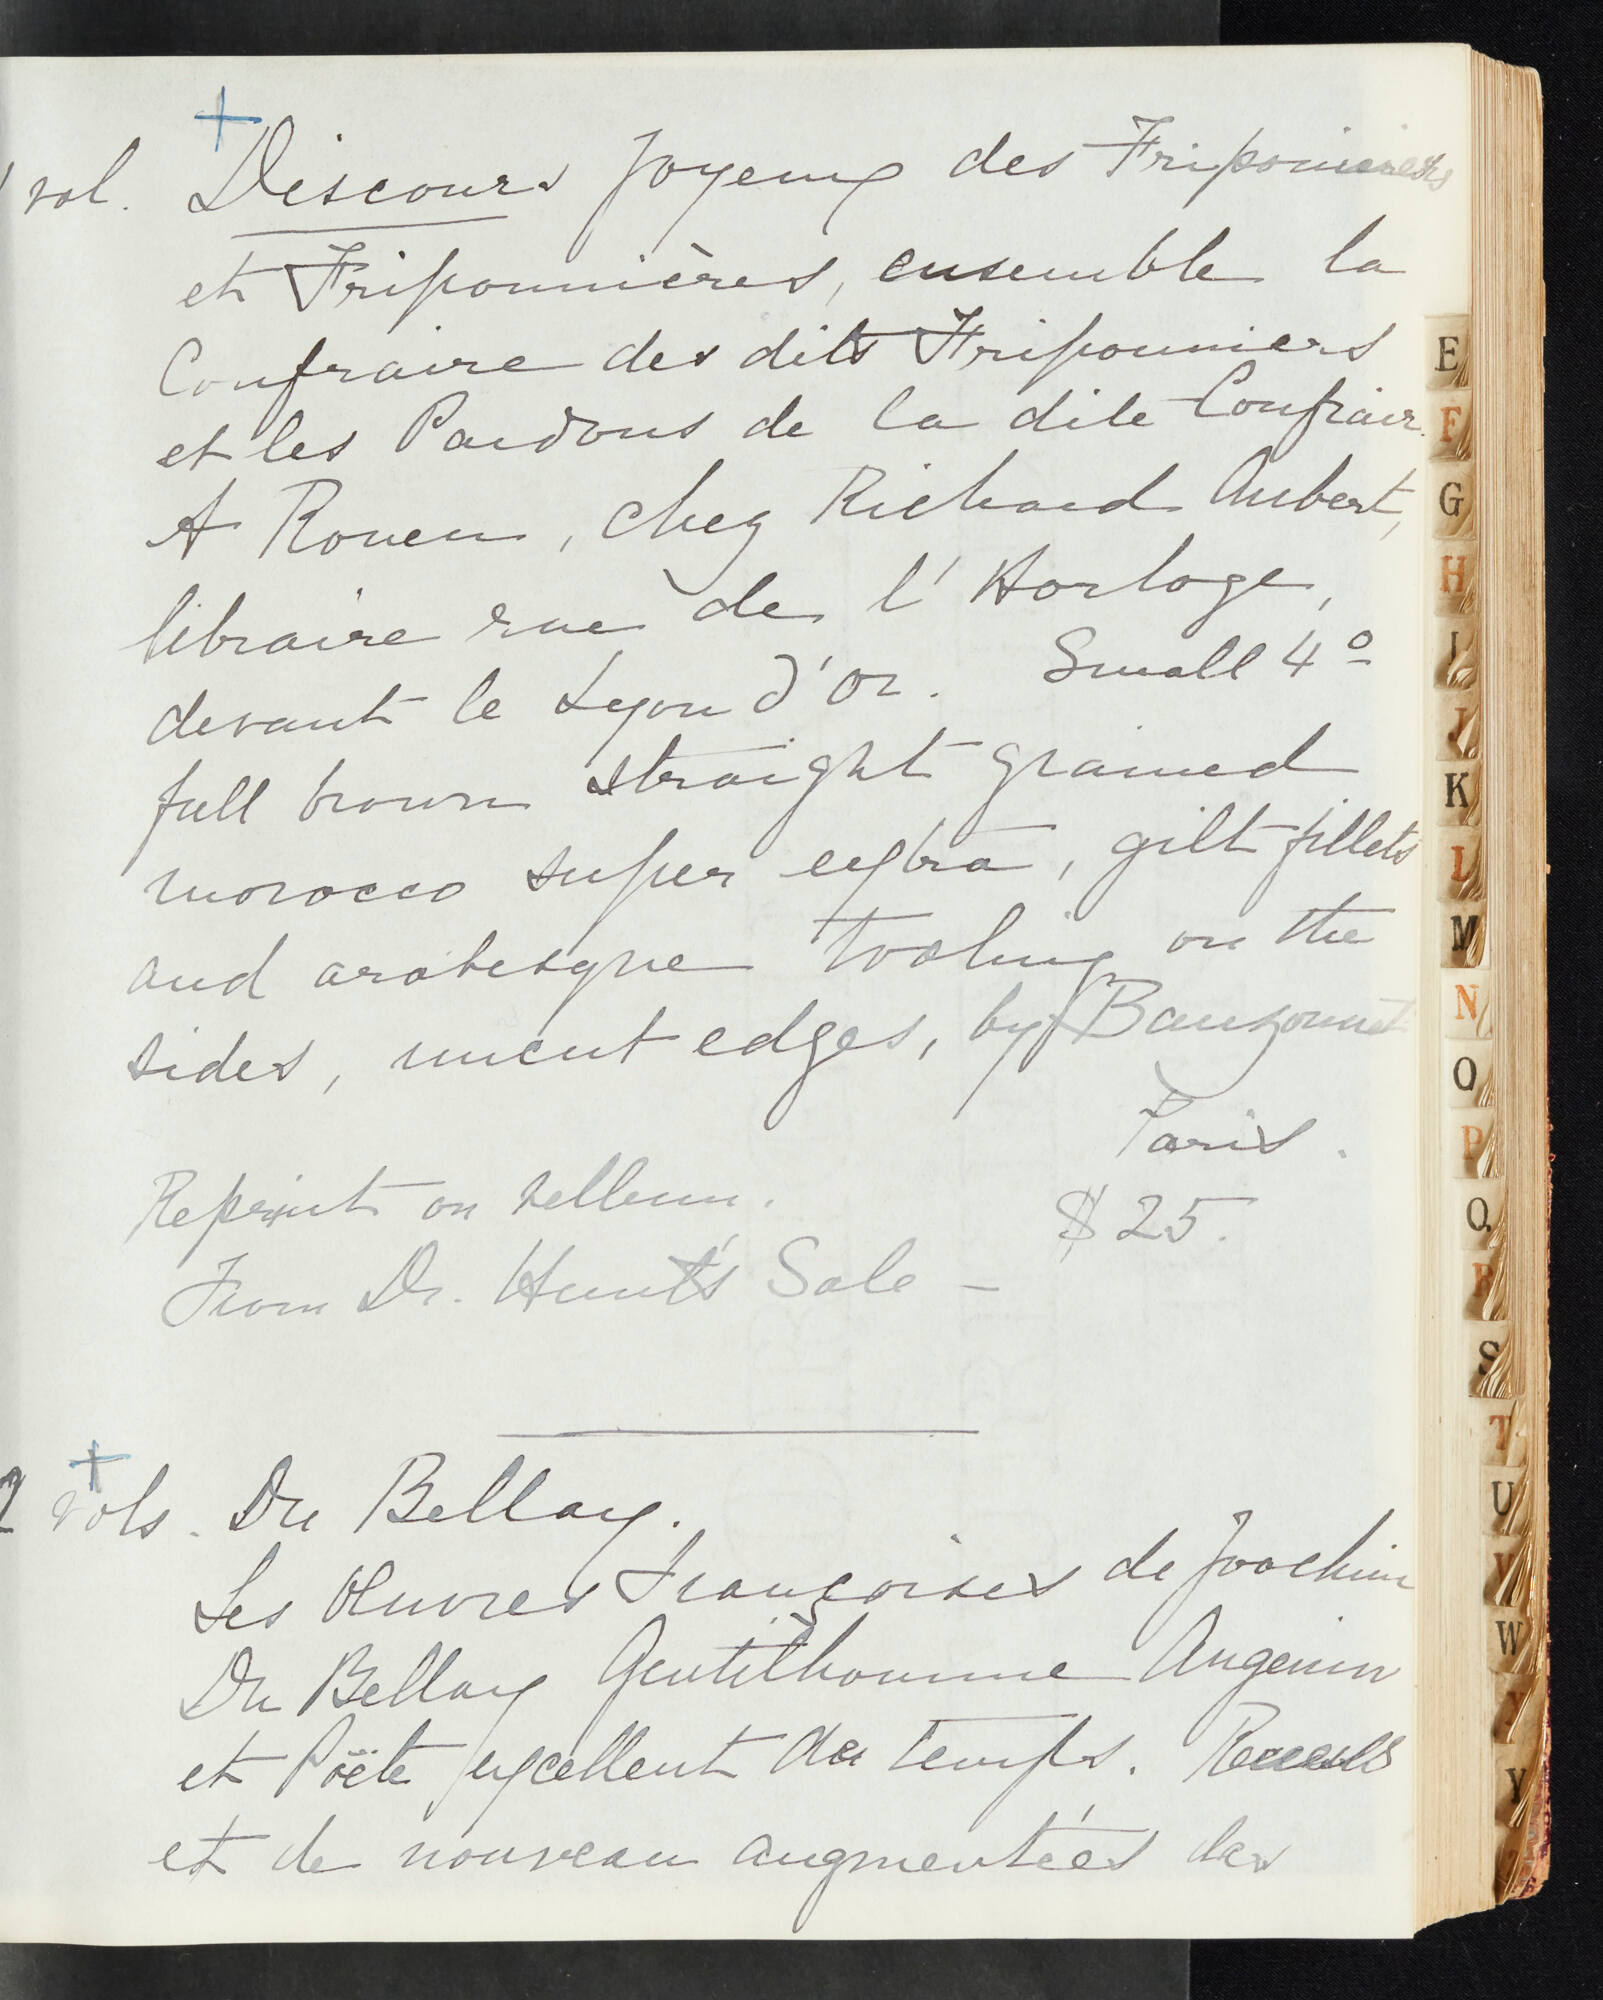 1 vol. Discours Joyeux des Friponniers
et Friponnières, ensemble la
Confraire des dits Friponniers
et les Pardons de la dite Confrair.
A Rouen, chez Richard Aubert,
libraire rue de l'Horloge,
devant le Lyon d'or. Small 4o
full brown straight grained
morocco super extra, gilt fillets
and arabesque tooling on the
sides, uncut edges, by Bauzonnet
Paris.
Reprint on vellum. $25.
From Dr. Hunt's Sale —
2 vols. Du Bellay.
Les Œuvres Françoises de Joachim
Du Bellay Gentilhomme Angevin
et Poëte excellent du temps.
et de nouveau augmentées des
E
F
G
H
I
J
K
L
M
N
O
P
Q
R
S
T
U
V
W
X
Y